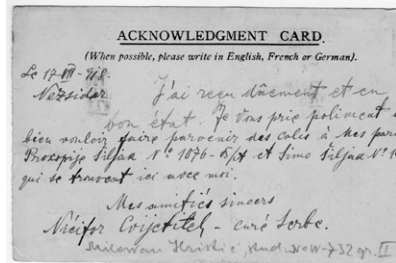 ACKNOWLEDGMENT CARD.
(When possible, please write in English, French or German).
Le 17-VII-918.
Nezsider J'ai reçu dûment et en
bon état. Je Vous prie poliment
bien vouloir faire parvenir des colis à mes
Prokopije Šiljak Nº 1076- et Simo Šiljak Nº
qui se trouvent ici avec moi.
Mes amitiés sincers
Nićifor Cvijetitch - curé Serbe.
Milovan Kristić